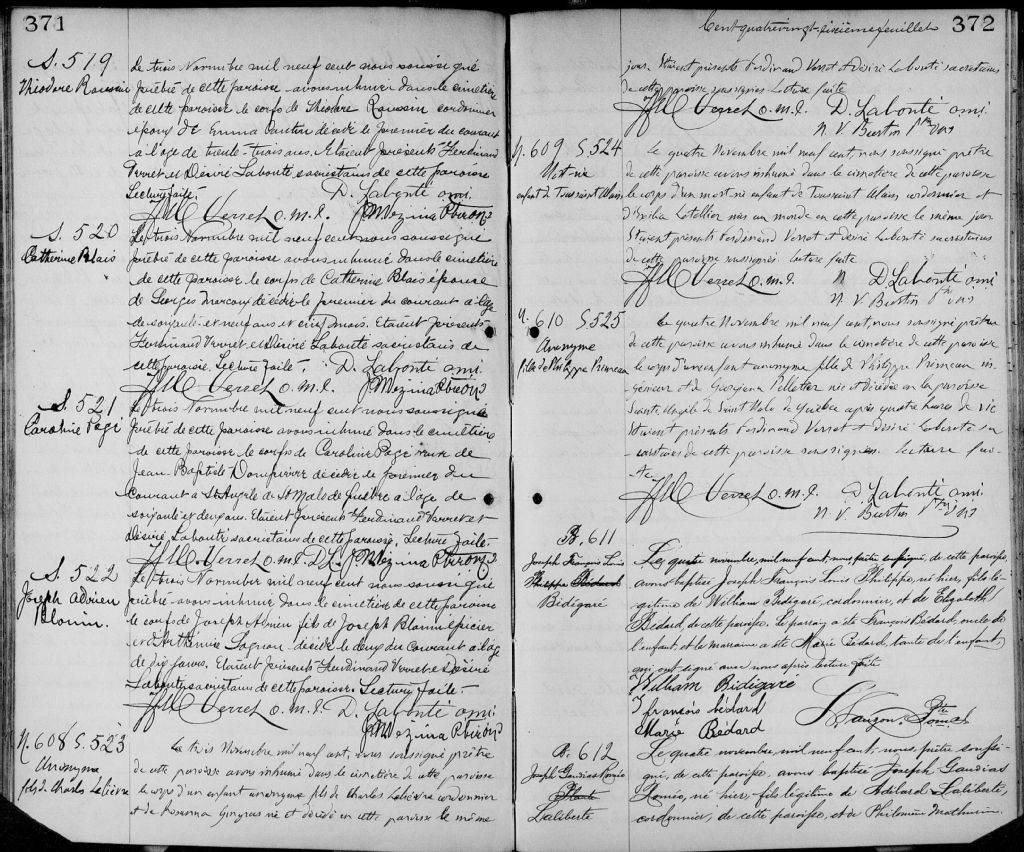 371
S. 519
Théodore Roussin
Le trois Novembre mil neuf cent nous soussigné
prêtre de cette paroisse avons inhumé dans le cimetière
de cette paroisse le corps de Théodore Roussin cordonnier
époux de Emma décédé le premier du courant
à l'âge de trente-trois ans. Etaient présents Ferdinand
Verret et Désiré Labonté sacristains de cette paroisse
Lecture faite. D. Labonté omi.
F M Verret o.m.i. J. Mezmina Ptre O
S. 520
Catherine Blais
Le trois Novembre mil neuf cent nous soussigné
prêtre de cette paroisse avons inhumé dans le cimetière
de cette paroisse le corps de Catherine Blais épouse
de Georges Marcoux décédée le premier du courant à l'âge
de soixante et neuf ans et cinq mois. Etaient présents
Ferdinand Verret et Désiré Labonté sacristains de
cette paroisse. Lecture faite. D. Labonté omi.
F M Verret o.m.i.
S. 521
Caroline Pagé
Le trois Novembre mil neuf cent nous soussigné
prêtre de cette paroisse avons inhumé dans le cimetière
de cette paroisse le corps de Caroline Pagé veuve de
Jean Baptiste décédée le premier du
courant à St Angèle de St Malo de Québec à l'âge de
soixante et deux ans. Etaient présents Ferdinand Verret et
Désiré Labonté sacristains de cette paroisse. Lecture faite.
F M Verret o.m.i. D. L.
S. 522
Joseph Adrien
Blouin.
Le trois Novembre mil neuf cent nous soussigné
prêtre avons inhumé dans le cimetière de cette paroisse
le corps de Joseph Adrien fils de Joseph Blouin épicier
et d'Arthémise Gagnon décédé le deux du courant à l'âge
de dix jours. Etaient présents Ferdinand Verret et Désiré
Labonté sacristains de cette paroisse. Lecture faite.
F M Verret o.m.i. D. Labonté omi.
N. 608 S. 523
Anonyme
fils de Charles Lelièvre
Le trois Novembre mil neuf cent, nous soussigné prêtre
de cette paroisse avons inhumé dans le cimetière de cette paroisse
le corps d'un enfant anonyme fils de Charles Lelièvre cordonnier
et de Rosanna Gingras né et décédé en cette paroisse le même
Cent quatre vingt-sixième feuillet
372
jour. Etaient présents Ferdinand Verret et Désiré Labonté sacristains
de cette paroisse soussignés. Lecture faite
F M Verret o.m.i. D. Labonté omi.
N. V. Burtin Ptre OMI
N. 609 S. 524
Mort-né
enfant de Toussaint Alain
Le quatre Novembre mil neuf cent, nous soussigné prêtre
de cette paroisse avons inhumé dans le cimetière de cette paroisse
le corps d'un mort-né enfant de Toussaint Alain cordonnier et
d'Emilia Letellier mis au monde en cette paroisse le même jour
Etaient présents Ferdinand Verret et Désiré Labonté sacristains
de cette paroisse soussignés lecture faite
F M Verret o.m.i. D Labonté omi
N. V. Burtin Ptre OMI
N. 610 S. 525
Anonyme
fille de Philippe Primeau
Le quatre Novembre mil neuf cent, nous soussigné prêtre
de cette paroisse avons inhumé dans le cimetière de cette paroisse
le corps d'un enfant anonyme fille de Philippe Primeau in-
génieur et de Georgiana Pelletier née et décédée en la paroisse
Sainte Angèle de Saint Malo de Québec après quatre heures de vie
Etaient présents Ferdinand Verret et Désiré Labonté sa-
cristains de cette paroisse soussignés. lecture fai-
te.
F M Verret o.m.i. D. Labonté omi
N. V. Burtin Ptre OMI
B. 611
Joseph François Louis
Philippe Bédard
Bidégaré
Le quatre novembre, mil neuf cent, nous, prêtre soussigné, de cette paroisse,
avons baptisé Joseph François Louis Philippe, né hier, fils lé-
gitime de William Bidégaré, cordonnier, et de Elizabeth
Bédard, de cette paroisse. Le parrain a été François Bédard, oncle de
l'enfant et la marraine a été Marie Bédard, tante de l'enfant
qui ont signé avec nous après lecture faite
William Bidégaré
François Bédard
Marie Bédard
B. 612
Joseph Gaudias Roméo
Laliberté
Le quatre novembre mil neuf cent, nous, prêtre soussi-
gné, de cette paroisse, avons baptisé Joseph Gaudias
Roméo, né hier, fils légitime de Adélard Laliberté,
cordonnier, de cette paroisse, et de Philomène Mathurin.